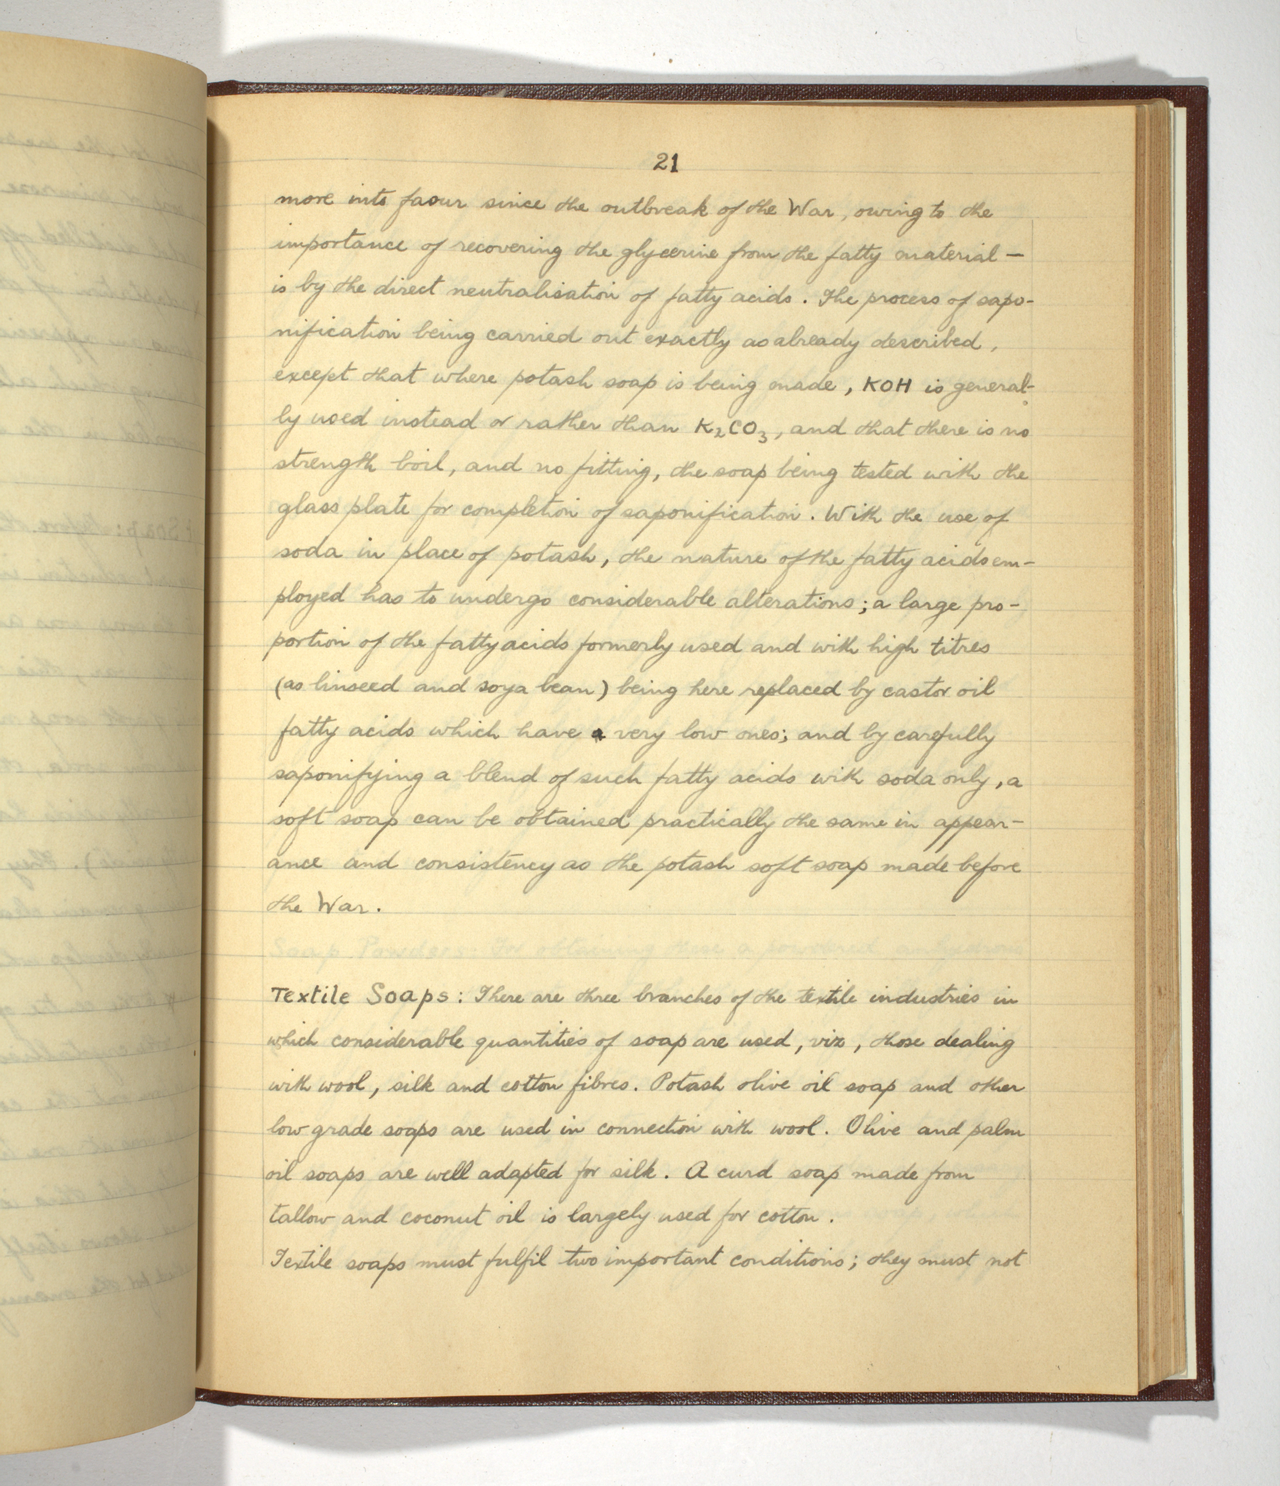 21
more into favour since the outbreak of the War, owing to the
importance of recovering the glycerine from the fatty material —
is by the direct neutralisation of fatty acids. The process of sapo-
nification being carried out exactly as already described,
except that where potash soap is being made, KOH is general-
ly used instead or rather than K₂CO₃, and that there is no
strength boil, and no fitting, the soap being tested with the
glass plate for completion of saponification. With the use of
soda in place of potash, the nature of the fatty acids em-
ployed has to undergo considerable alterations; a large pro-
portion of the fatty acids formerly used and with high titres
(as linseed and soya bean) being here replaced by castor oil
fatty acids which have a very low ones; and by carefully
saponifying a blend of such fatty acids with soda only, a
soft soap can be obtained practically the same in appear-
ance and consistency as the potash soft soap made before
the War.
Soap Powders: For obtaining these a powdered anhydrous
Textile Soaps: There are three branches of the textile industries in
which considerable quantities of soap are used, viz, those dealing
with wool, silk and cotton fibres. Potash olive oil soap and other
low grade soaps are used in connection with wool. Olive and palm
oil soaps are well adapted for silk. A curd soap made from
tallow and coconut oil is largely used for cotton.
Textile soaps must fulfil two important conditions; they must not